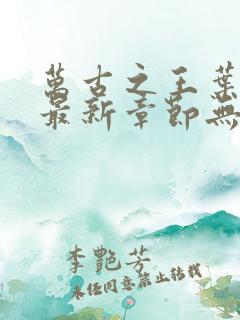 萬古之王葉
最新章節無
李艷芳
未經同意禁止轉載